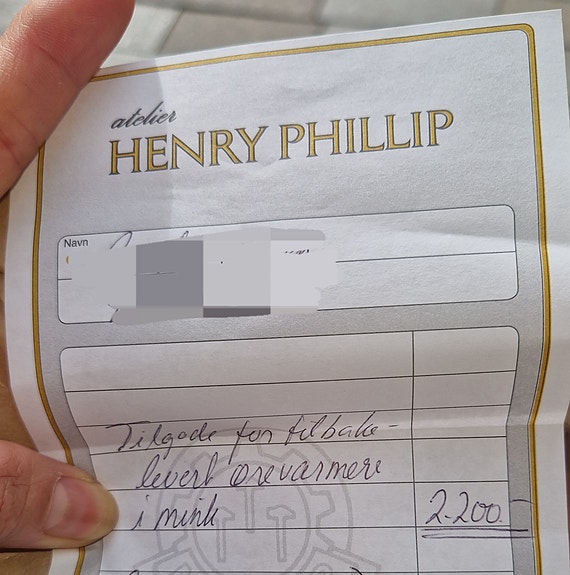 atelier
HENRY PHILLIP
Navn
Tilgode for tilbake-
levert ørevarmere
i mink 2.200